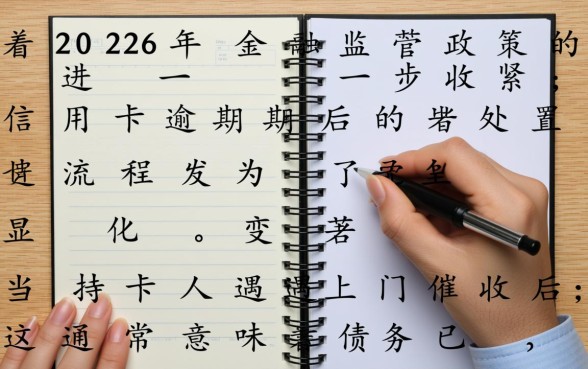 着 20 226 年 金 融 监 管 政 策 的
进 一 一 步 收 紧 ；
信 用 卡 逾 期 期 后 的 处 置
流 程 发 为 了
显 化 。 变 著
当 持 卡 人 遇 遇 上 门 催 收 后 ；
这 通 常 意 味 着 债 务 已 ，